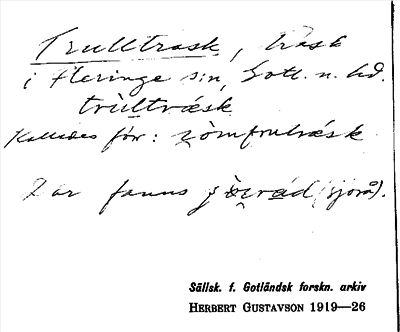 Trullträsk, träsk
i Fleringe s:n, Gotl. n. hd.
trùltræsk
Kallades för: jòmfrutræsk
Där fanns sjöråd (sjörå).
Sällsk. f. Gotländsk forskn. arkiv
HERBERT GUSTAVSON 1919—26